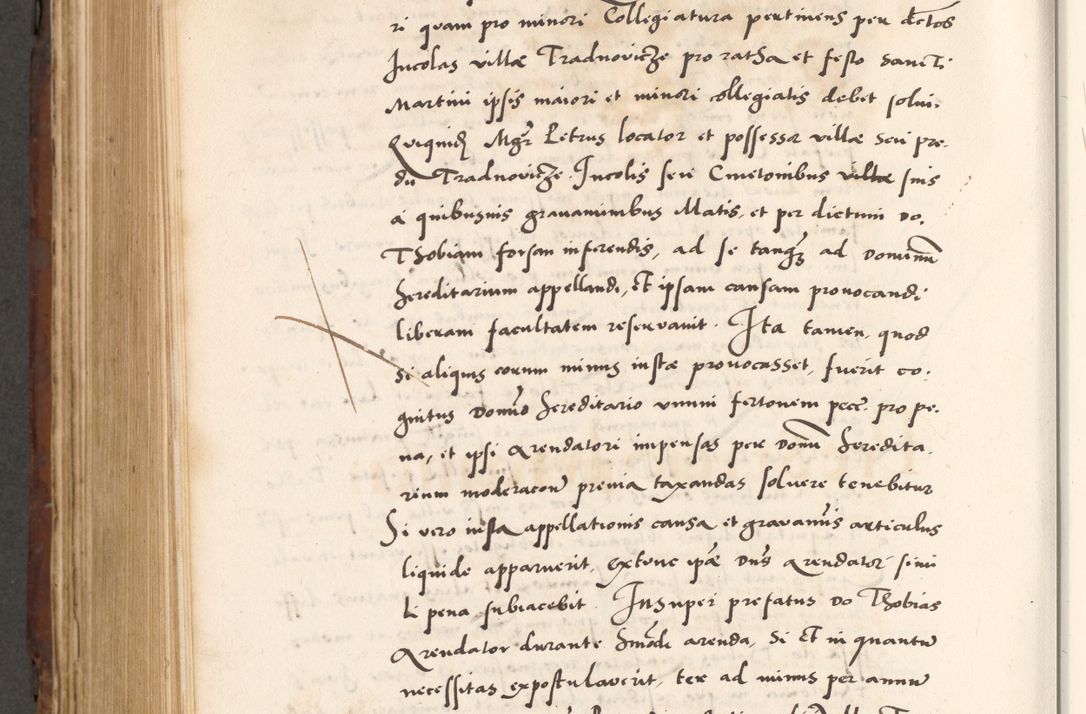 ri quam pro minori Collegiatura pertinens per dctos
Incolas villæ Tradnovicze pro ratha et festo sancti
Martini ipsis maiori et minori collegiatis debet solui.
Quiquidē Mgr̄ Petrus locator et possessor villæ seu pre-
dii Tradnovicze Incolis seu Cmetonibus villæ suis
a quibusuis grauaminibus illatis, et per dictum do.
Thobiam forsan inferendis, ad se tanq̄ ad dominum
hereditarium appellandi, et ipsam causam prouocandi
liberam facultatem reseruauit. Ita tamen, quod
si aliquis eorum minus iustæ prouocasset, fuerit co-
gnitus domino hereditario vnum fertonem pecc. pro pe-
na, et ipsi arendatori impensas per domū heredita-
rium moderaconē preuia taxandas soluere tenebitur
Si vero iusta appellationis causa et grauamīs articulus
liquide apparuerit, extunc ipse dns arendator simi
li pena subiacebit. Insuper prefatus do Thobias
Arendator durante hmōdi arenda, si et in quantū
necessitas expostulauerit, ter ad minus per annū